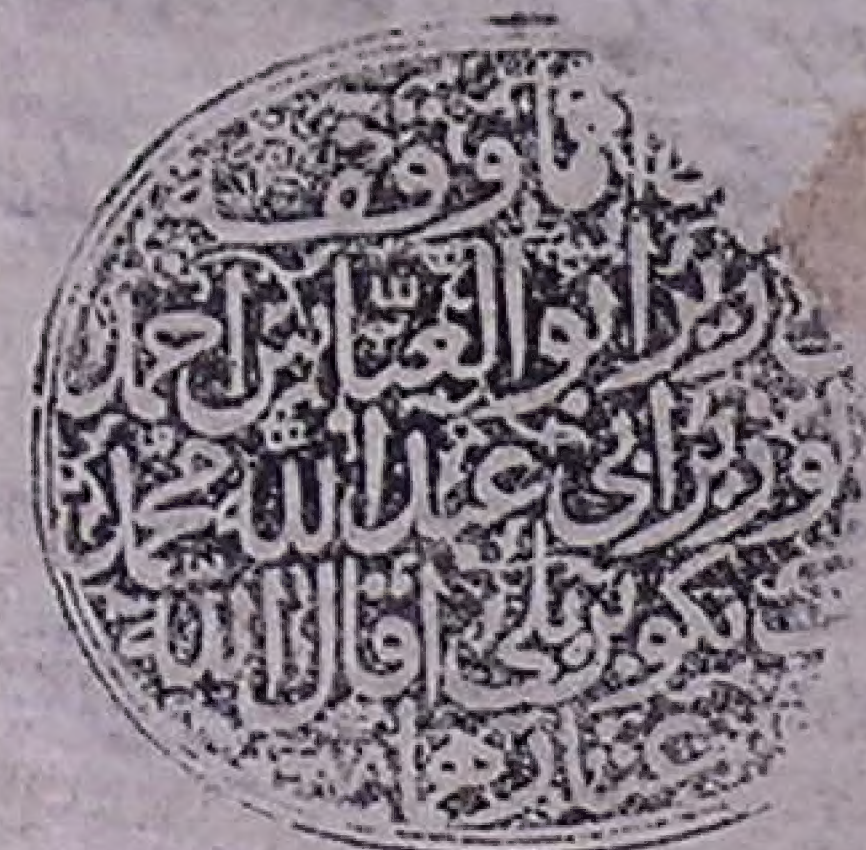 ما وقف
الوزير ابو العباس احمد
الوزير ابي عبد الله محمد
بكوبريلي اقال الله
عثارهما